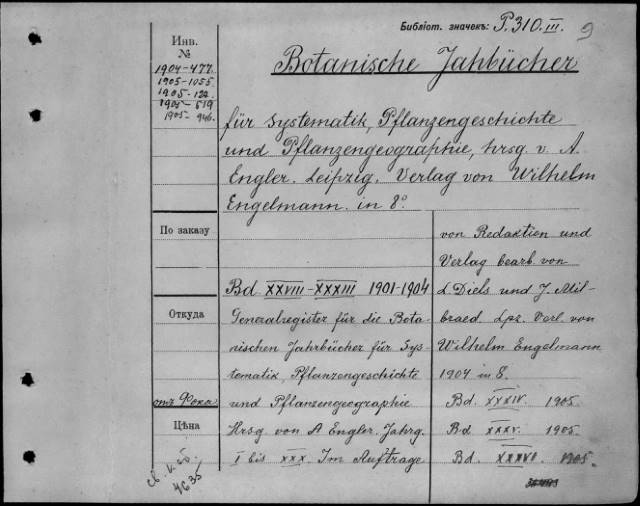 Библіот. значекъ: P. 310. III. 9
Инв.
№
1904-477.
1905-1055
1905-122
1905-519
1905-946.
Botanische Jahbücher
für Systematik, Pflanzengeschichte
und Pflanzengeographie, hrsg. v. A
Engler. Leipzig. Verlag von Wilhelm
Engelmann. in 8º
По заказу
Bd XXVIII-XXXIII 1901-1904
Откуда
Generalregister für die Bota-
nischen Jahrbücher für Sys-
tematik, Pflanzengeschichte
und Pflanzengeographie
Hrsg von A Engler. Jahrg.
I bis XXX. Im Auftrage
отъ Фока
Цѣна
св. к об.
4635
von Redaktien und
Verlag bearb. von
L Diels und J. Mil-
braed. Lpz. Verl. von
Wilhelm Engelmann
1904 in 8.
Bd. XXXIV. 1905.
Bd XXXV. 1905.
Bd. XXXVI. 1905.